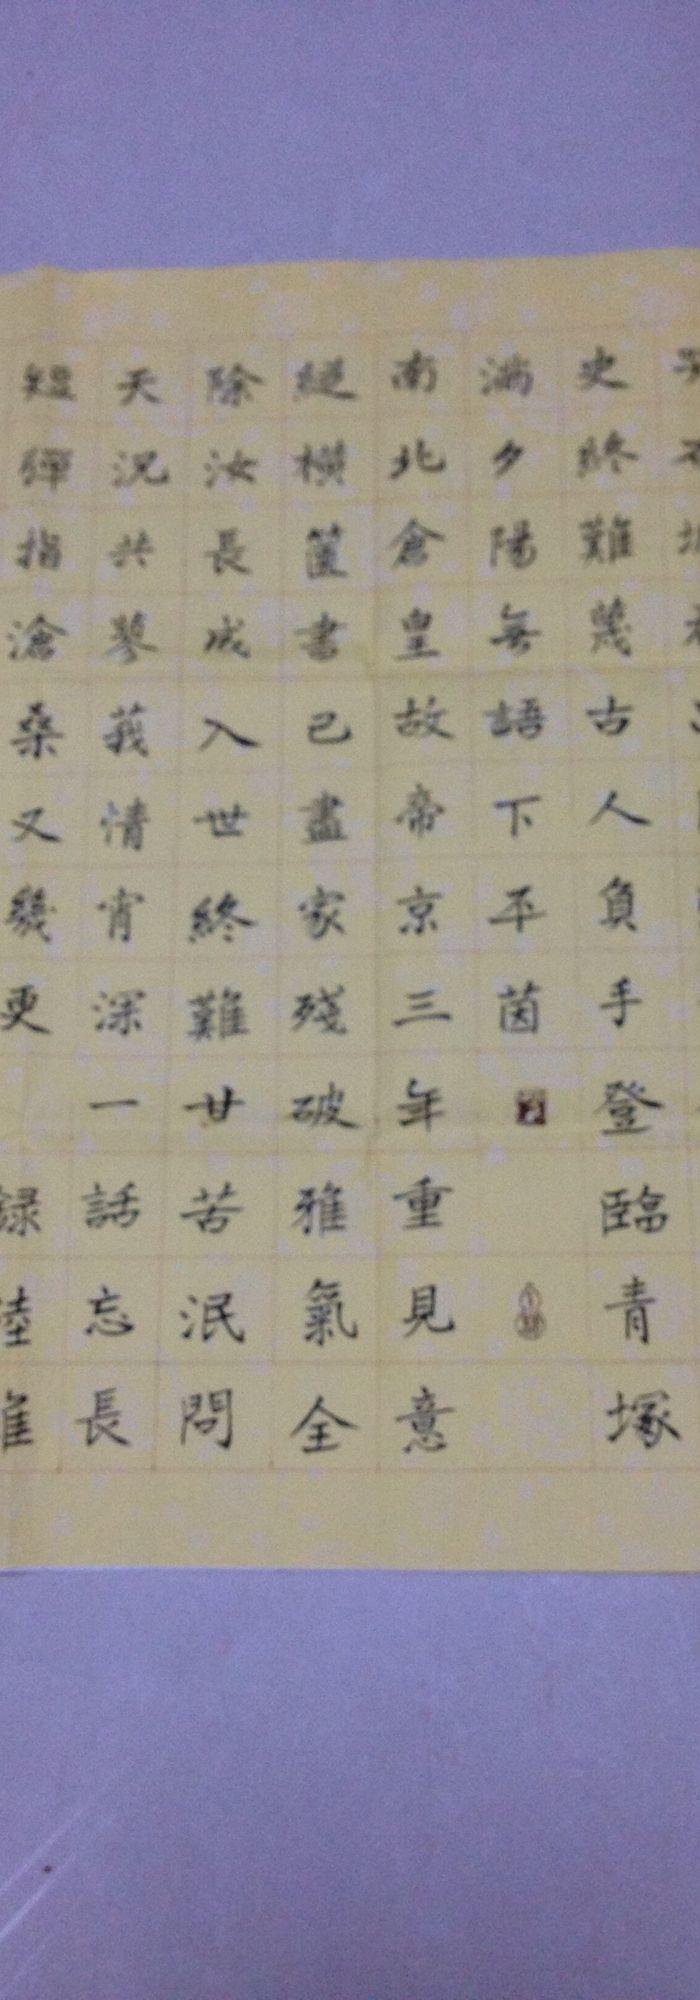 史終難蔑古人負手登臨青塚
滿夕陽無語下平茵
南北倉皇故帝京三年重見意
縱橫篋書已盡家殘破雅氣全
除汝長成入世終難廿苦泯問
天況共蓼莪情宵深一話忘長
短彈指滄桑又幾更